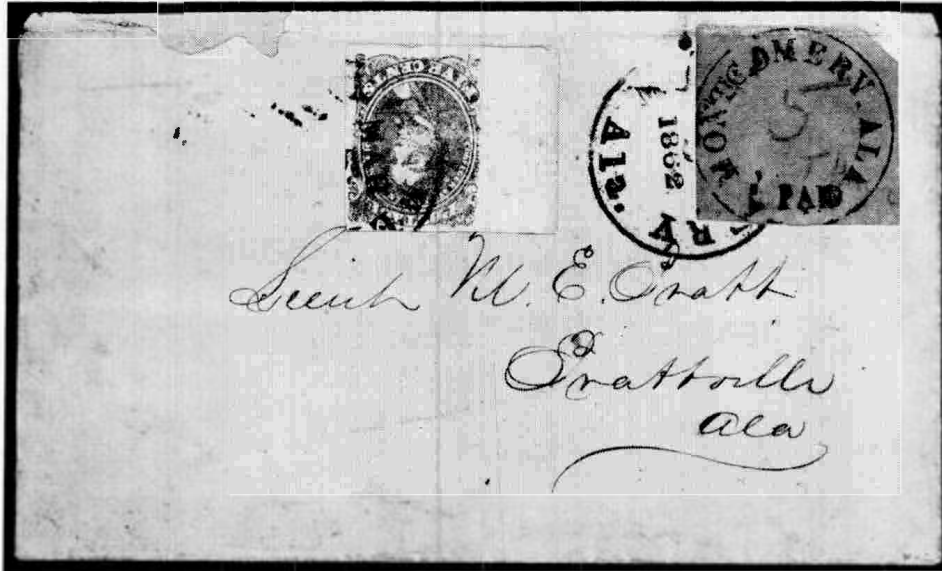 MONTGOMERY. ALA
5
PAID
1862
RY
Ala.
Lieut M. E. Pratt
Prattville
Ala